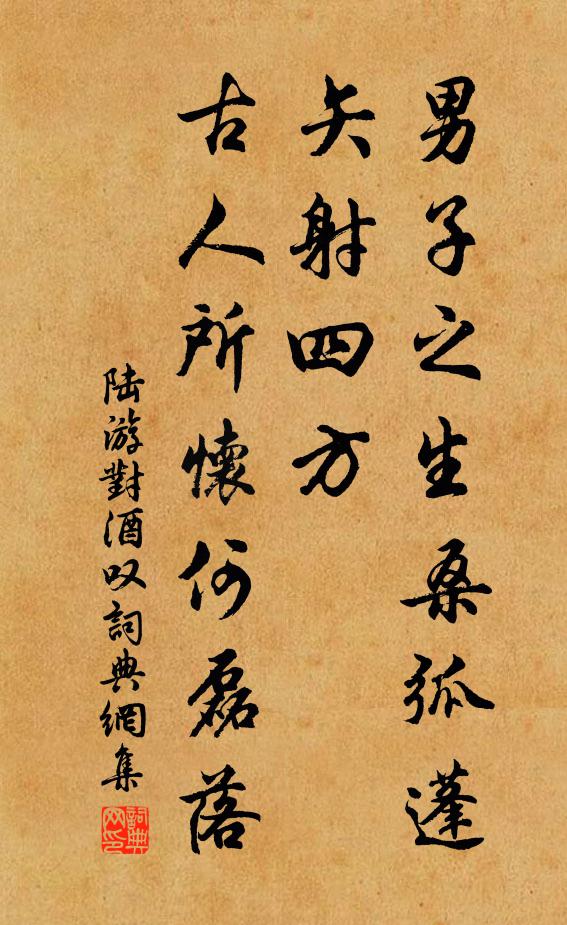 男子之生桑弧蓬
矢射四方
古人所懷何磊落
陆游對酒叹詞典網集
詞典网印